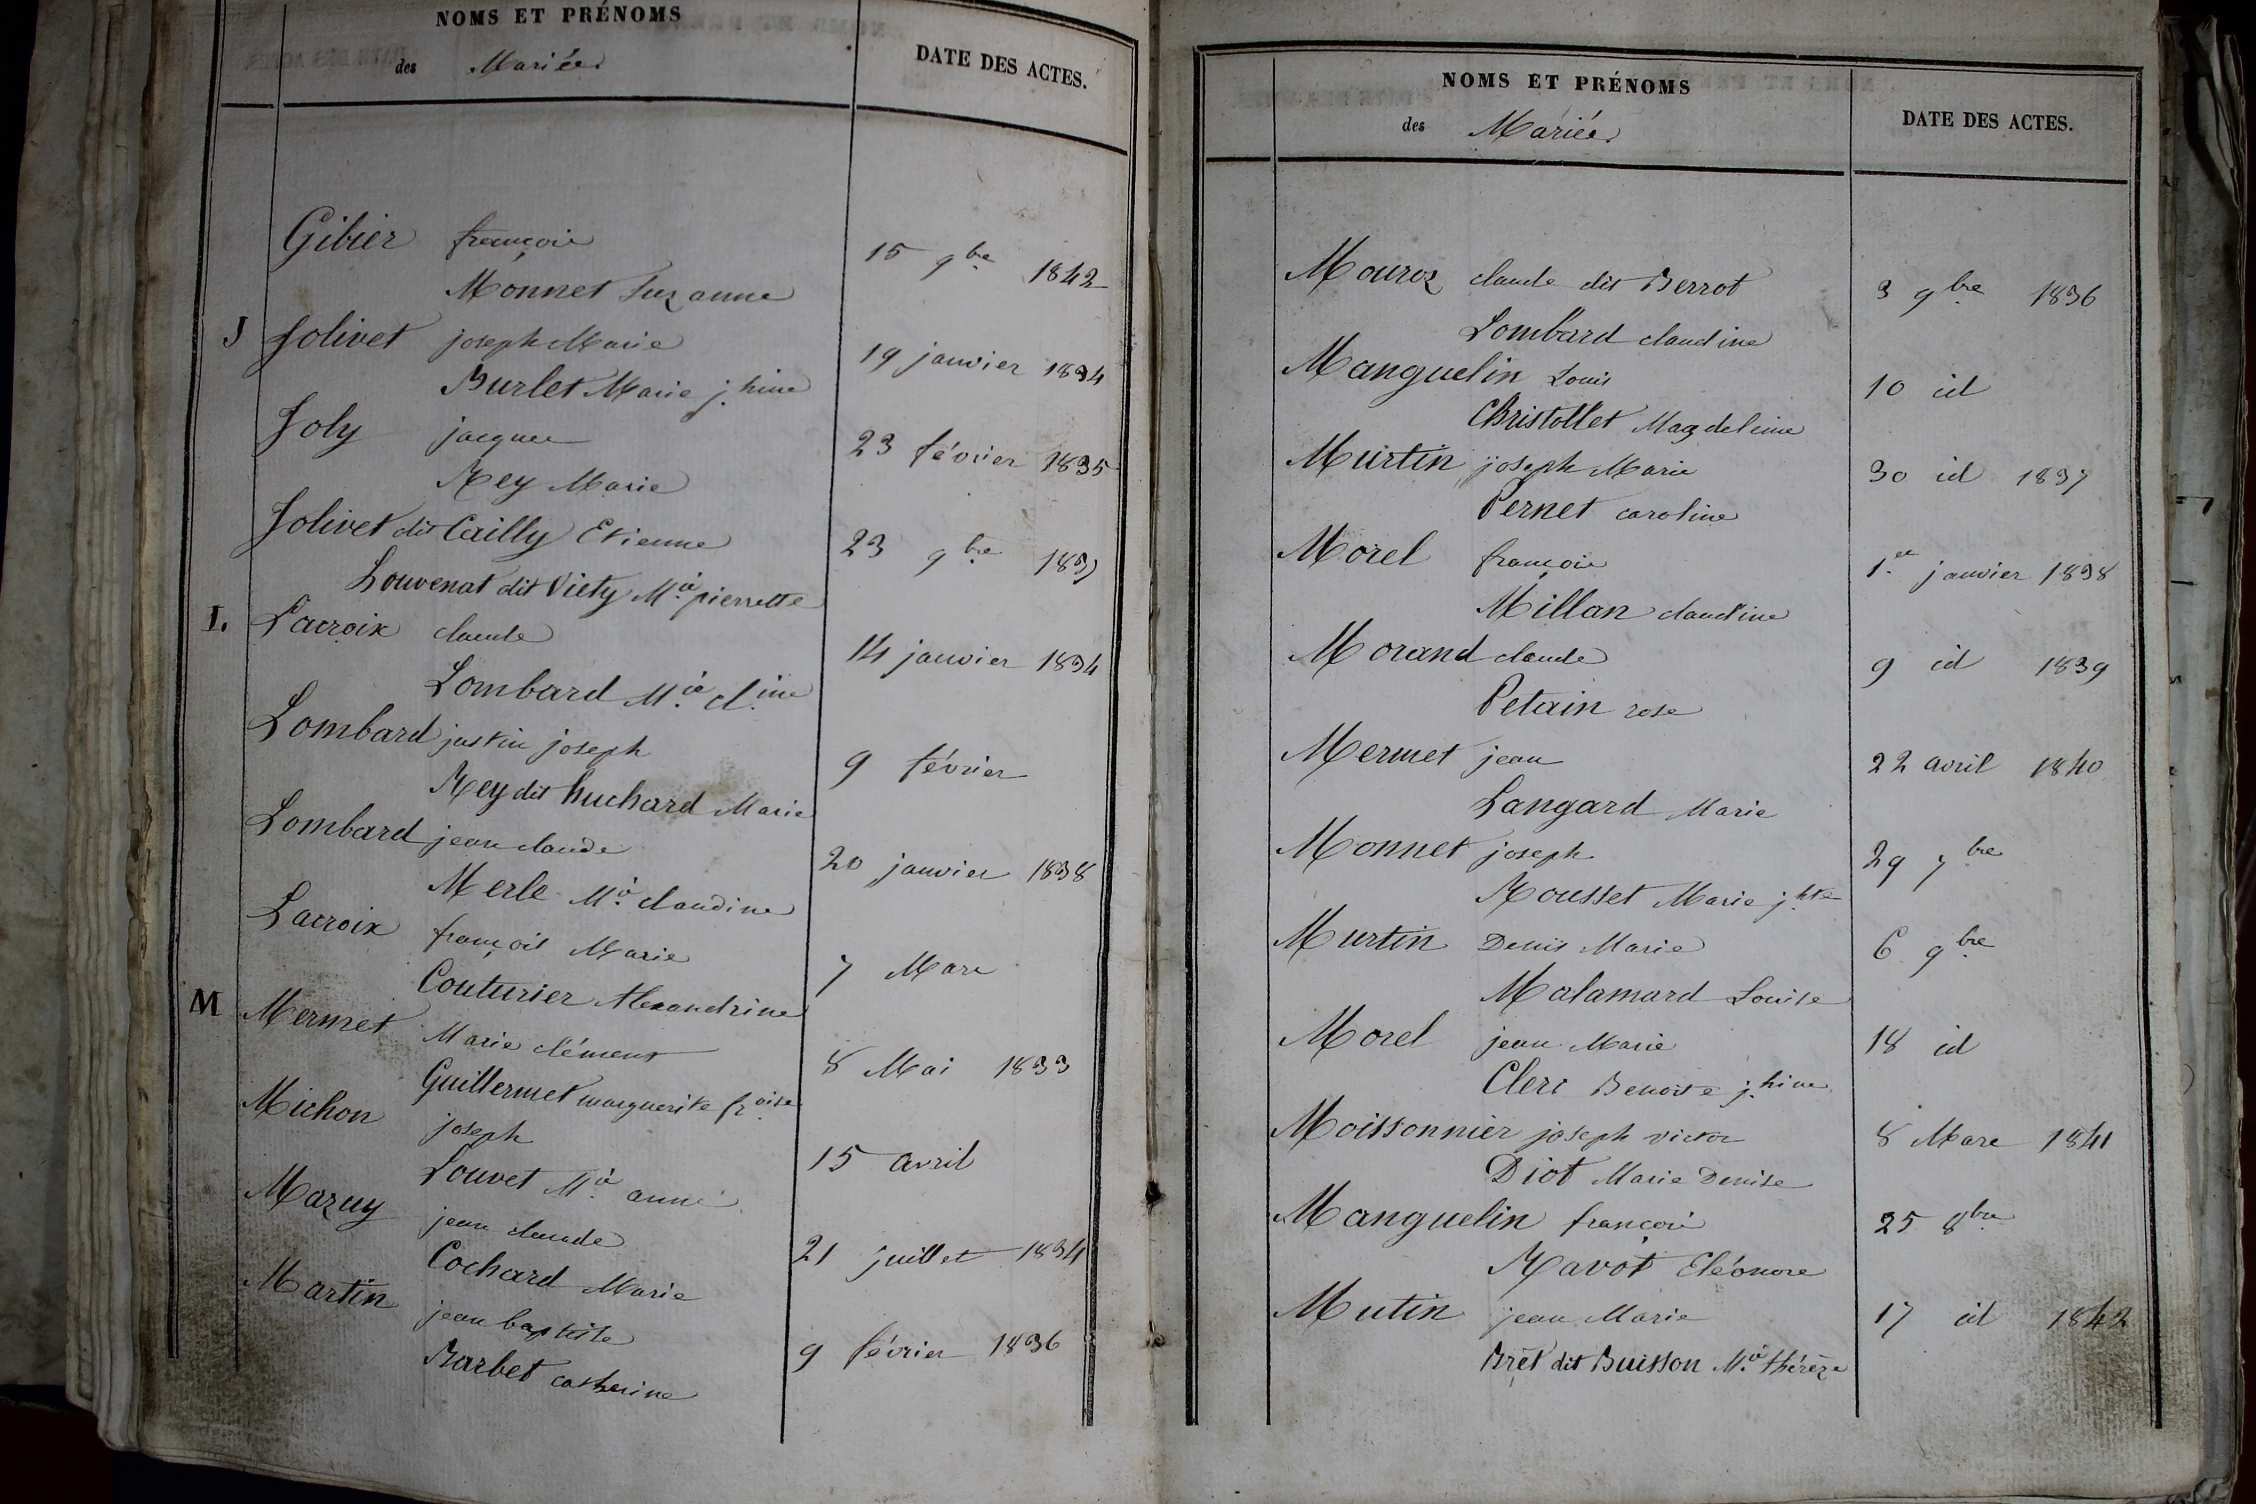 NOMS ET PRÉNOMS
des Mariés
DATE DES ACTES.
Gibier françois 15 9bre 1842
Monnet Suzanne
J Jolivet joseph Marie 19 janvier 1834
Burlet Marie j.hine
Joly jacques 23 février 1835
Rey Marie
Jolivet dit Cailly Etienne 23 9bre 1839
Louvenat dit Viety M.ie pierrette
L. Lacroix claude 14 janvier 1834
Lombard M.ie cl.ine
Lombard justin joseph 9 février
Rey dit huchard Marie
Lombard jean claude 20 janvier 1838
Merle M.ie claudine
Lacroix françois Marie 7 Mars
Couturier Alexandrine
M Mermet Marie clément 8 Mai 1833
Guillermet marguerite fr.oise
Michon joseph 15 avril
Louvet M.ie anne
Mazuy jean claude 21 juillet 1834
Cochard Marie
Martin jean baptiste 9 février 1836
Barbet catherine
NOMS ET PRÉNOMS
des Mariés
DATE DES ACTES.
Mouroz claude dit Berrot 3 9bre 1836
Lombard claudine
Manguelin Louis 10 id
Christollet Magdeleine
Murtin joseph Marie 30 id 1837
Pernet caroline
Morel françois 1.er janvier 1838
Millan claudine
Morand claude 9 id 1839
Petain rose
Mermet jean 22 avril 1840
Langard Marie
Monnet joseph 29 7bre
Rousset Marie j.hte
Murtin Denis Marie 6 9bre
Malamard Louise
Morel jean Marie 18 id
Clerc Benoite j.hine
Moissonnier joseph victor 8 Mars 1841
Diot Marie Denise
Manguelin françois 25 8bre
Ravot Eléonore
Mutin jean Marie 17 id 1842
Brêt dit Buisson M.ie thérèze